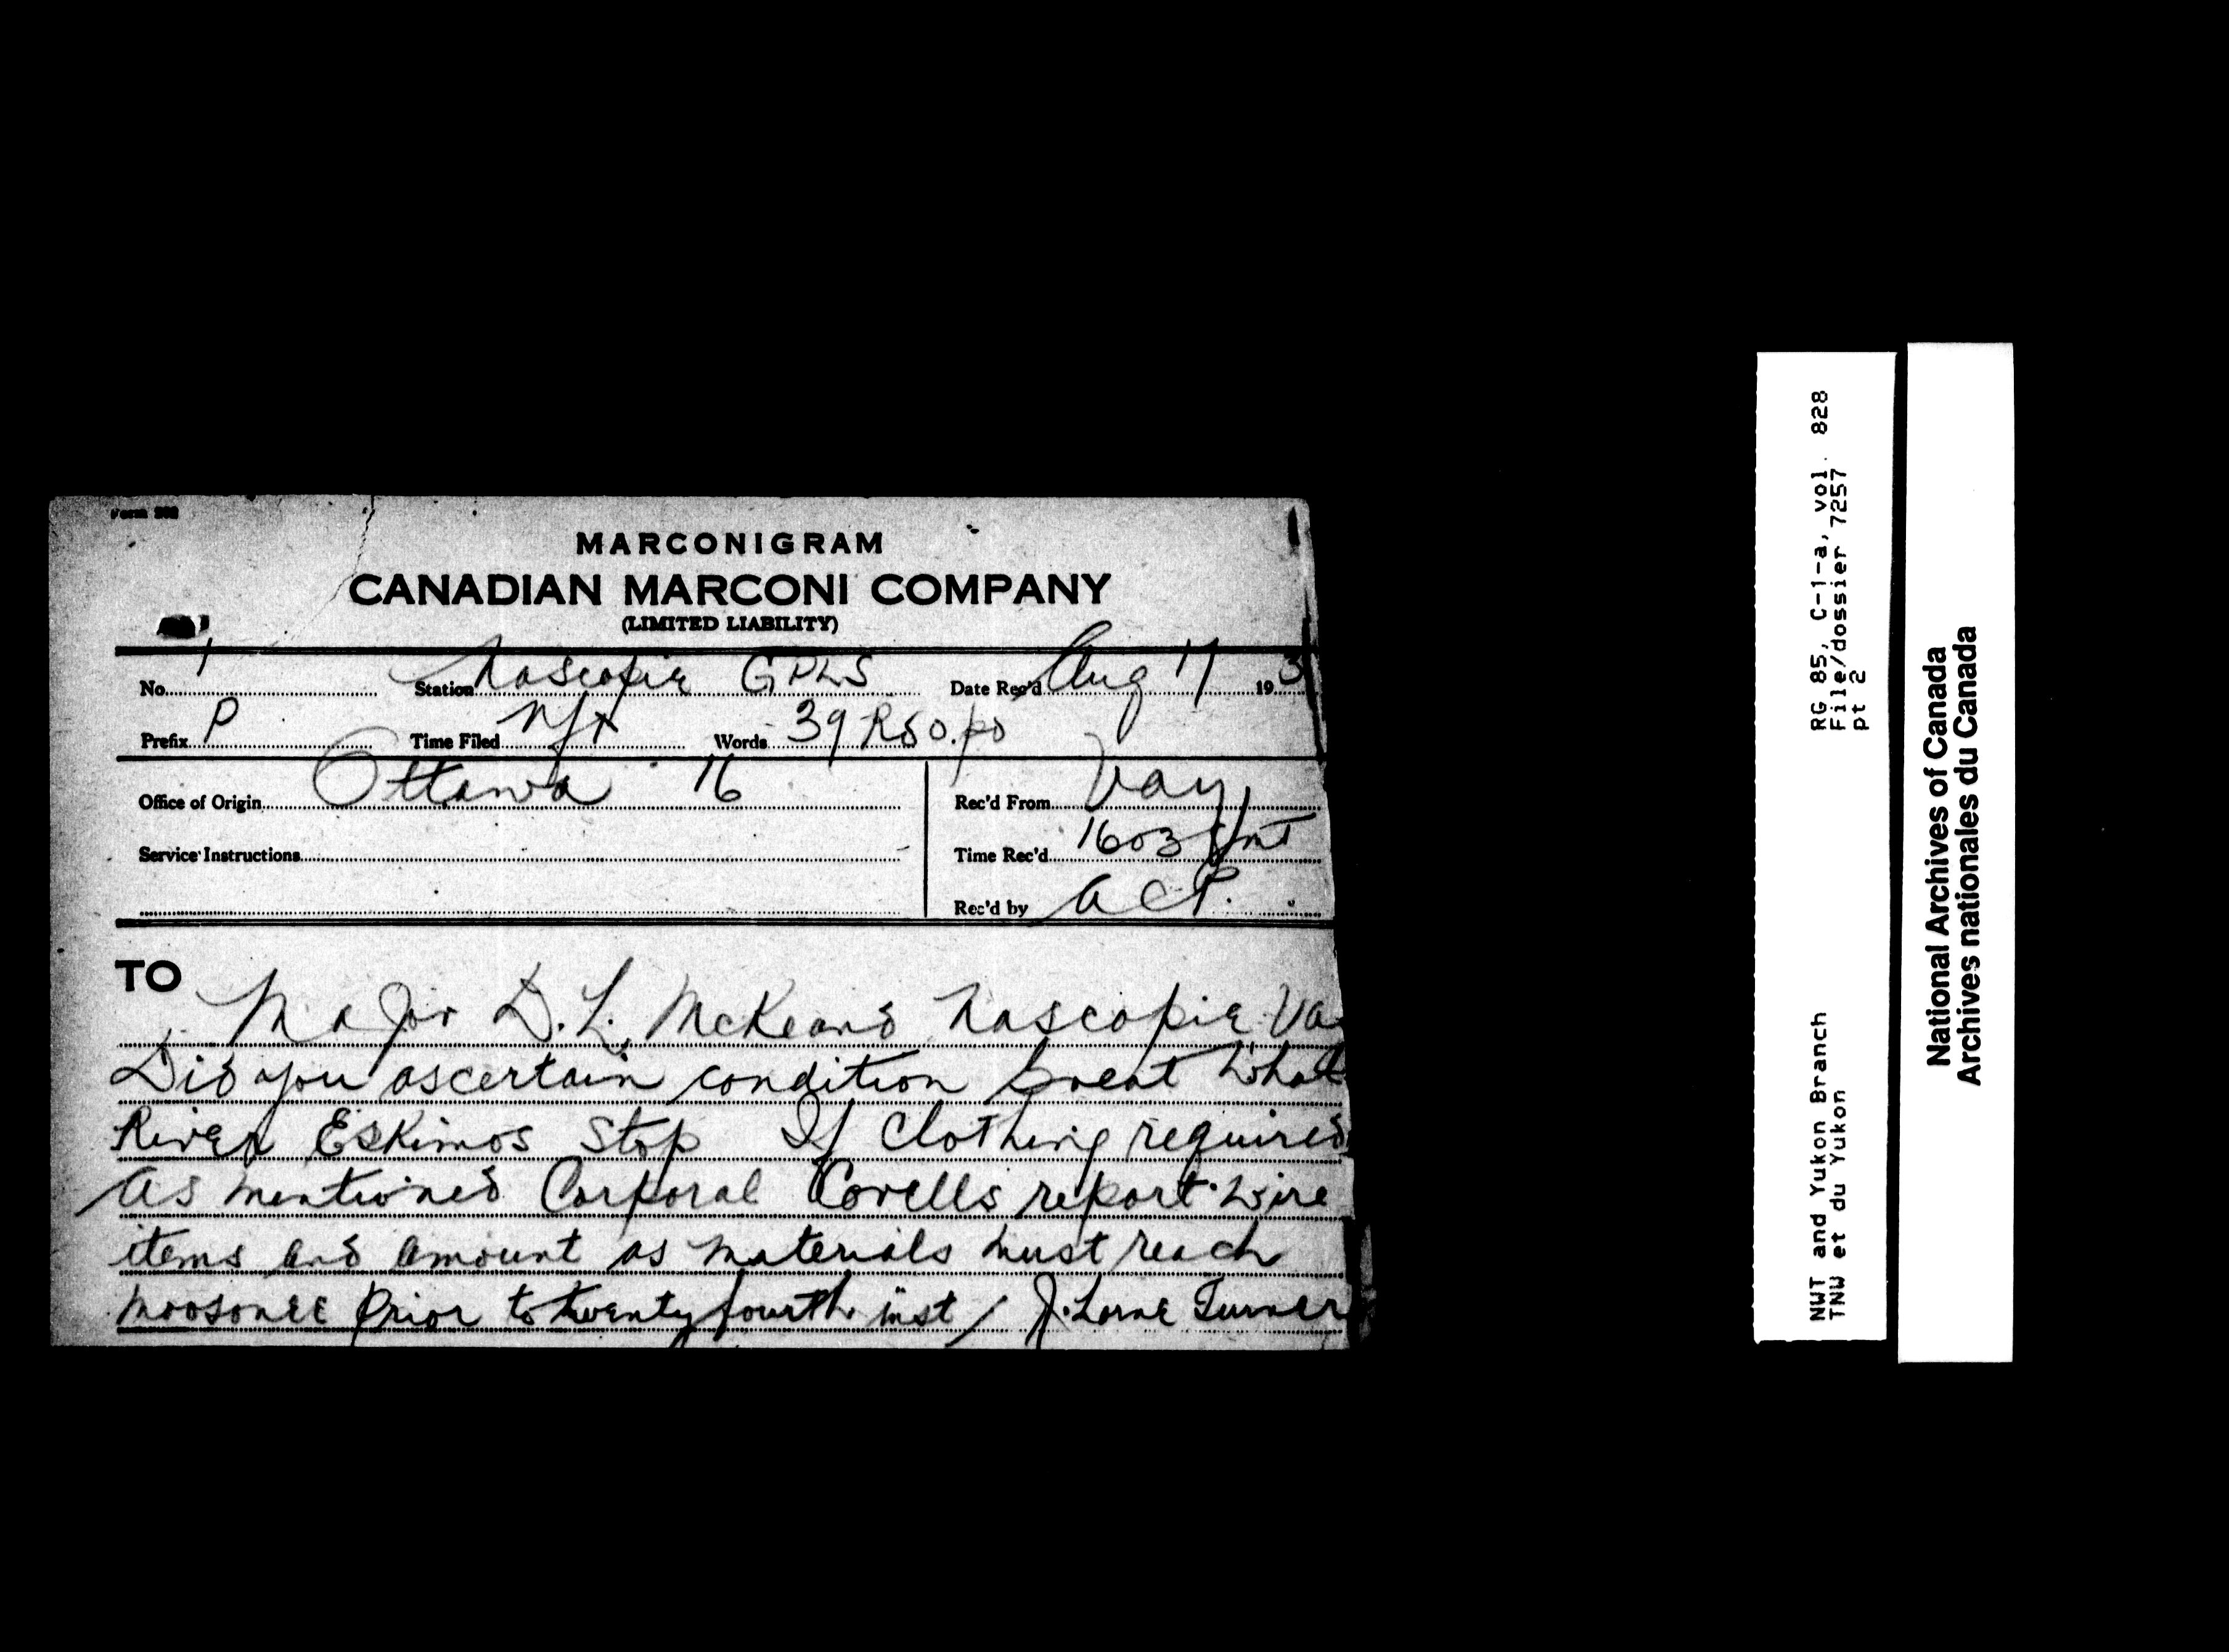 MARCONIGRAM
CANADIAN MARCONI COMPANY
(LIMITED LIABILITY)
No. 1 Station Nascopie Date Rec'd Aug 17 193
Prefix P Time Filed Words 39
Office of Origin Ottawa 16 Rec'd From Vay
Service Instructions Time Rec'd 1603 gmt
Rec'd by ACP.
TO
Major D.L. McKeand Nascopie Va
Did you ascertain condition Great Whale
River Eskimos Stop If Clothing required
As mentioned Corporal Covells report wire
items and amount as materials must reach
Moosonee Prior to twenty fourth inst / J. Lorne Turner
RG 85, C-1-a, vol. 828
File/dossier 7257
pt 2
NWT and Yukon Branch
TNW et du Yukon
National Archives of Canada
Archives nationales du Canada